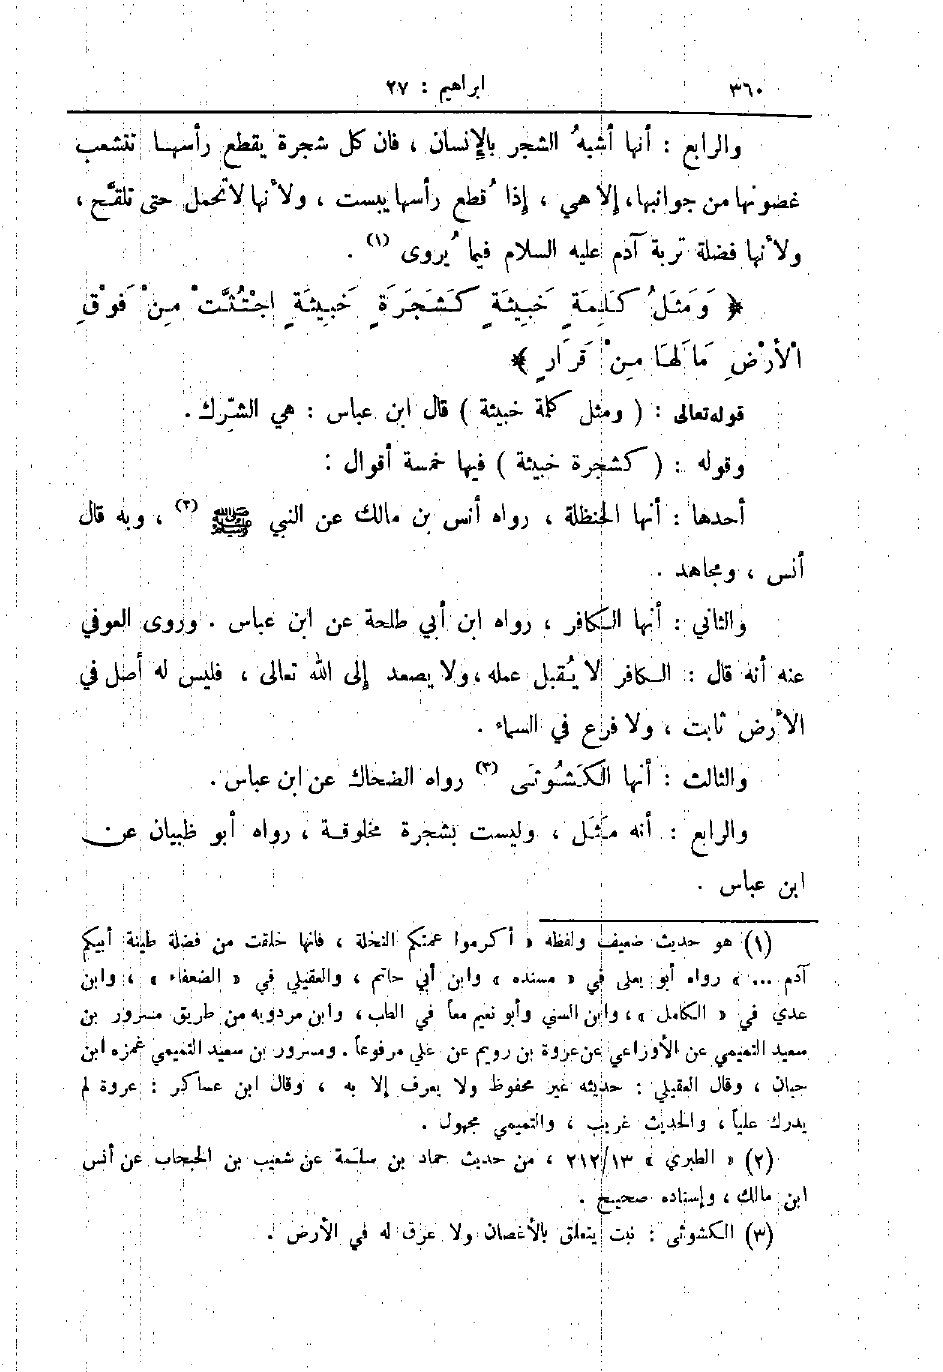 ٣٦٠ ابراهيم : ٢٧
والرابع : أنها أشبهُ الشجر بالإنسان ، فان كل شجرة يقطع رأسها تتشعب
غضونها من جوانبها، إلا هي ، إذا قُطع رأسها يبست ، ولأنها لا تحمل حتى تلقَّح ،
ولأنها فضلة تربة آدم عليه السلام فيما يُروى (١) .
﴿ وَمَثَلُ كَلِمَةٍ خَبِيثَةٍ كَشَجَرَةٍ خَبِيثَةٍ اجْتُثَّتْ مِنْ فَوْقِ
الْأَرْضِ مَا لَهَا مِنْ قَرَارٍ ﴾
قوله تعالى : ( ومثل كلمة خبيثة ) قال ابن عباس : هي الشِّرك .
وقوله : ( كشجرة خبيثة ) فيها خمسة أقوال :
أحدها : أنها الحنظلة ، رواه أنس بن مالك عن النبي ﷺ (٢) ، وبه قال
أنس ، ومجاهد .
والثاني : أنها الكافر ، رواه ابن أبي طلحة عن ابن عباس . وروى العوفي
عنه أنه قال : الكافر لا يُقبل عمله ، ولا يصعد إلى الله تعالى ، فليس له أصل في
الأرض ثابت ، ولا فرع في السماء .
والثالث : أنها الكَشُوثَى (٣) رواه الضحاك عن ابن عباس .
والرابع : أنه مَثَل ، وليست بشجرة مخلوقة ، رواه أبو ظبيان عن
ابن عباس .
(١) هو حديث ضعيف ولفظه « أكرموا عمتكم النخلة ، فانها خلقت من فضلة طينة أبيكم
آدم ... » رواه أبو يعلى في « مسنده » وابن أبي حاتم ، والعقيلي في « الضعفاء » ، وابن
عدي في « الكامل » ، وابن السني وأبو نعيم معاً في الطب ، وابن مردويه من طريق مسرور بن
سعيد التميمي عن الأوزاعي عن عروة بن رويم عن علي مرفوعاً . ومسرور بن سعيد التميمي غمزه ابن
حبان ، وقال العقيلي : حديثه غير محفوظ ولا يعرف إلا به ، وقال ابن عساكر : عروة لم
يدرك علياً ، والحديث غريب ، والتميمي مجهول .
(٢) « الطبري » ٢١٢/١٣ ، من حديث حماد بن سلمة عن شعيب بن الحبحاب عن أنس
ابن مالك ، وإسناده صحيح .
(٣) الكشوثى : نبت يتعلق بالأغصان ولا عرق له في الأرض .